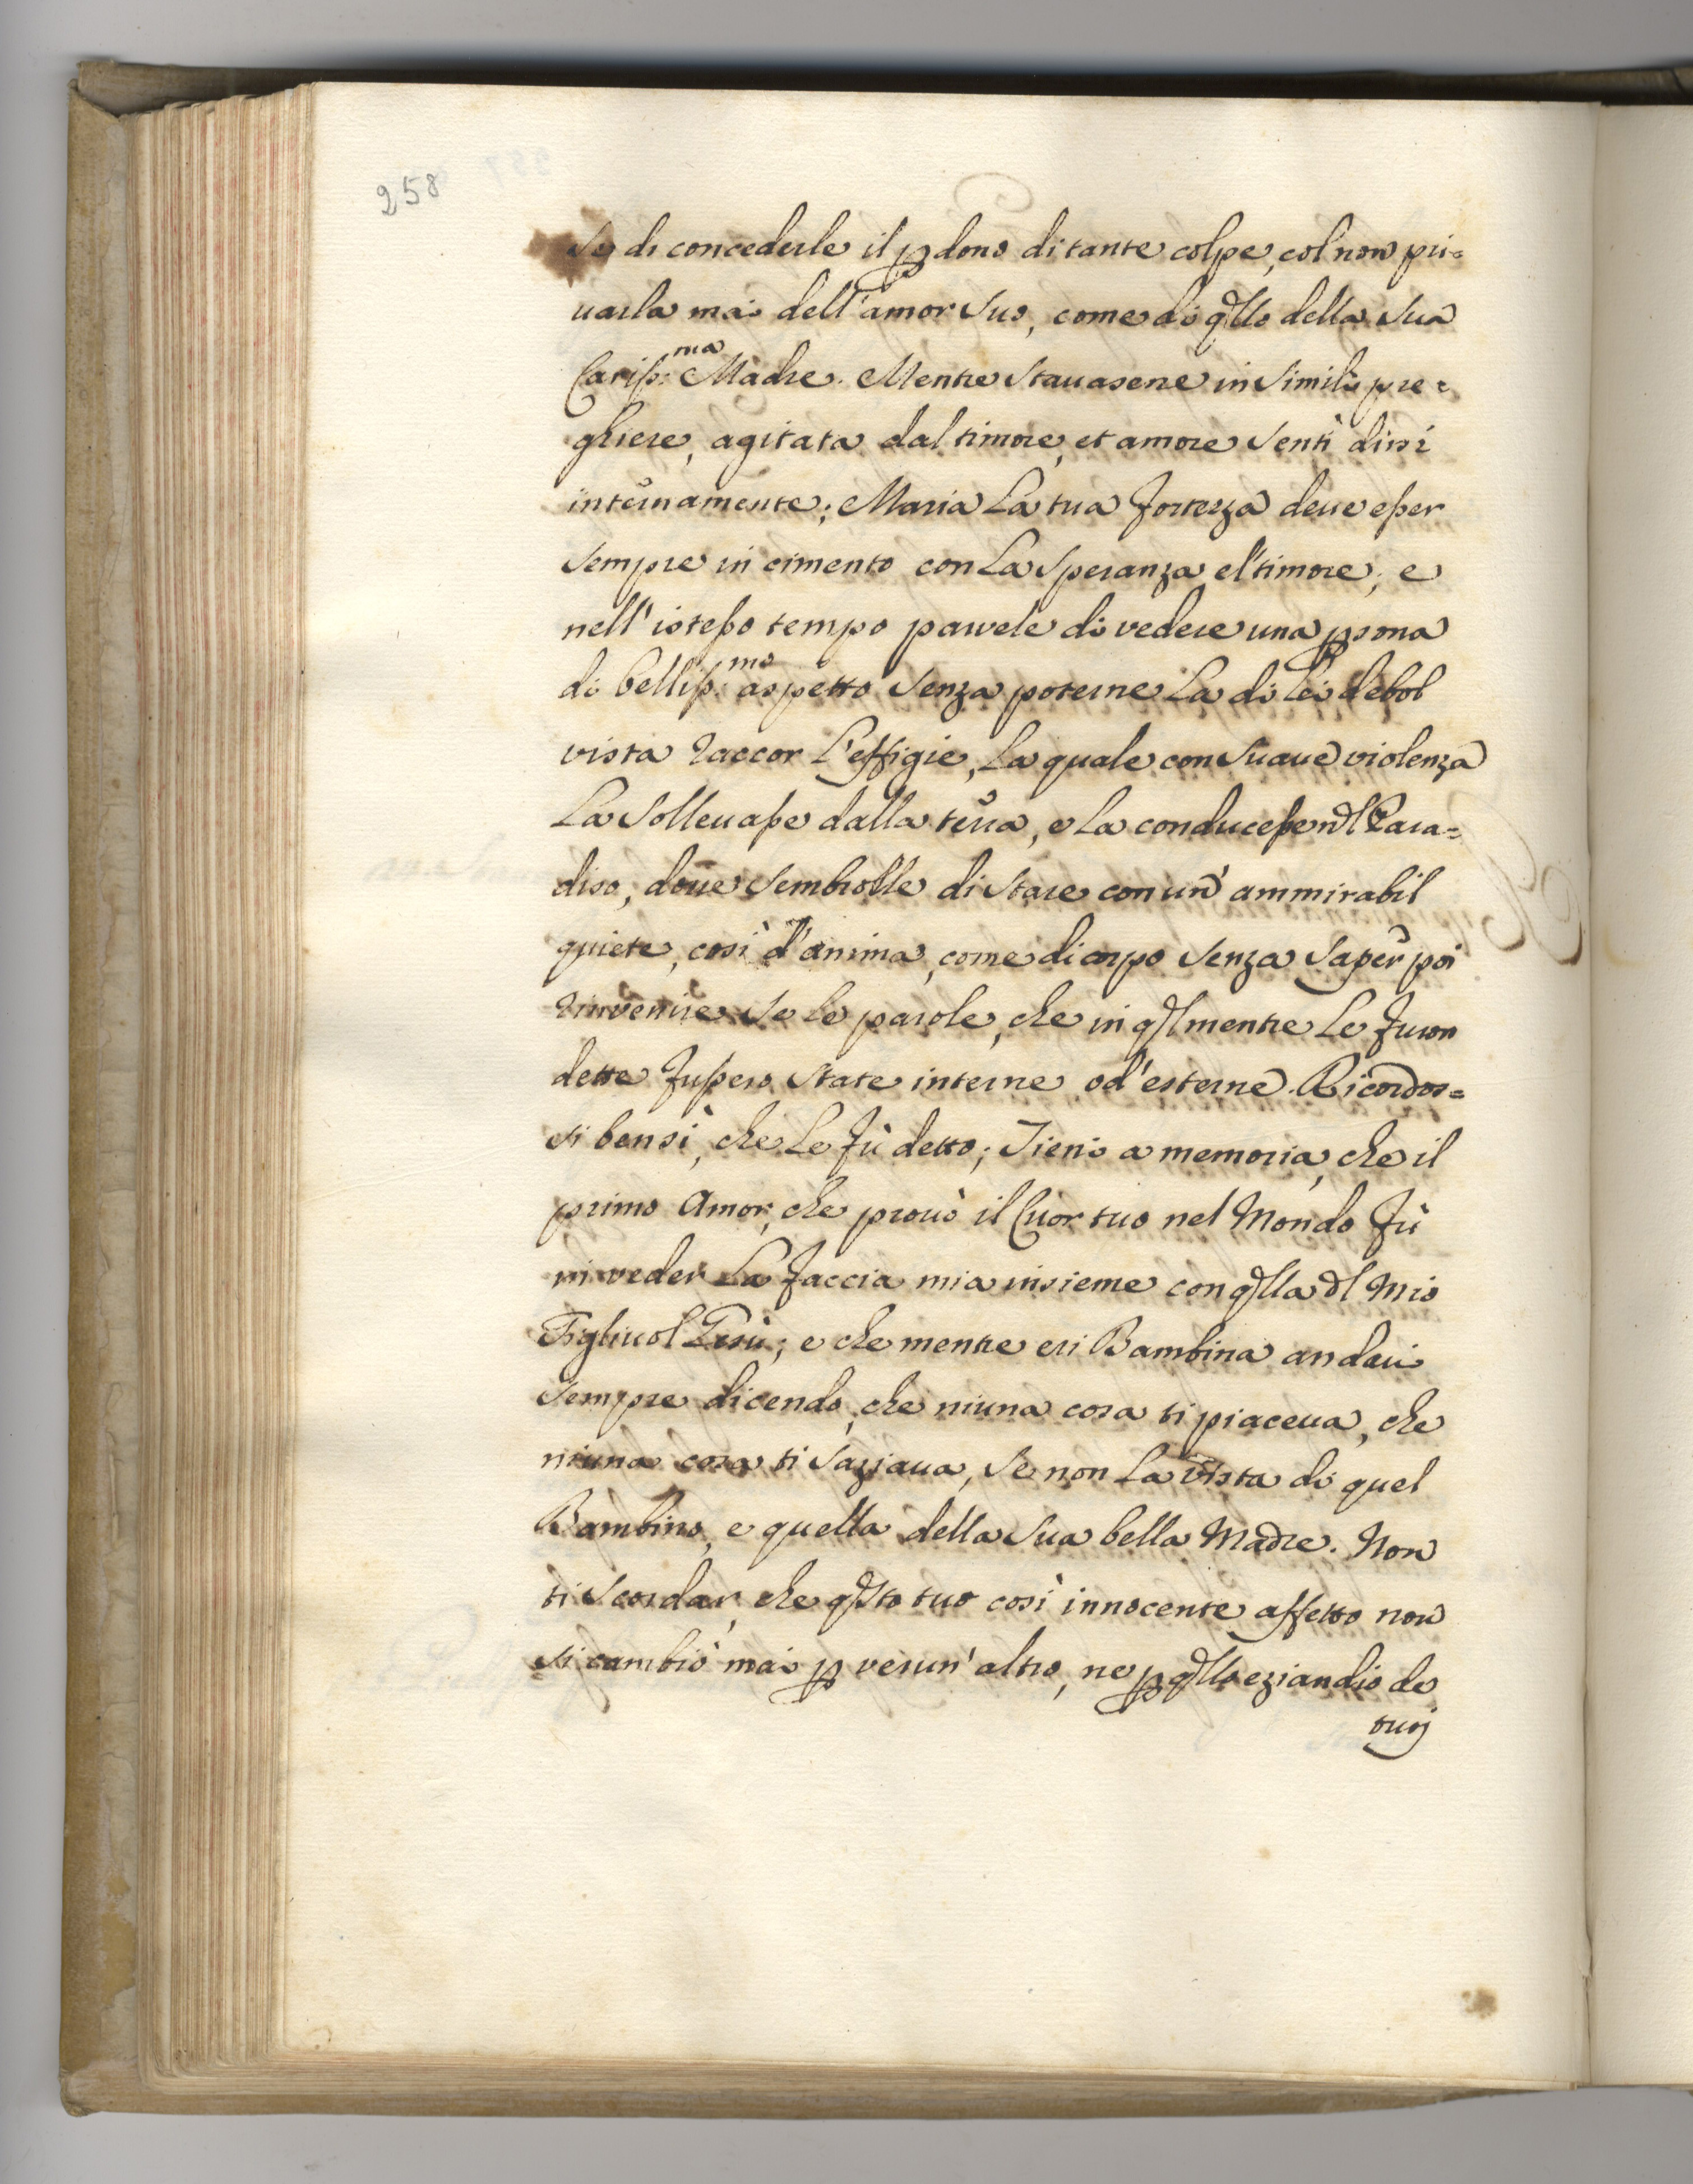 258
se di concederle il ꝑdono di tante colpe, col non pri=
uarla mai dell'amor suo, come di qllo della sua
Cariss:ma Madre. Mentre stauasene in simili pre=
ghiere, agitata dal timore, et amore sentì dirsi
internamente; Maria La tua fortezza deue esser
sempre in cimento con La speranza, e'l timore; e
nell'istesso tempo parvele di vedere una ꝑsona
di belliss:mo aspetto senza poterne La di lei debol
vista raccor L'effigie, La quale con suaue violenza
La solleuasse dalla terra, e La conducesse nel Para=
diso, doue sembrolle di stare con un' ammirabil
quiete, così d'anima, come di corpo senza saper poi
rinvenire se le parole, che in ql mentre Le furon
dette fussero state interne, od' esterne. Ricordos=
si bensì, che Le fù detto; Tieni a memoria, che il
primo Amor, che prouò il Cuor tuo nel Mondo fù
in veder La faccia mia insieme con qlla dl Mio
Figliuol Gesù; e che mentre eri Bambina andaui
sempre dicendo, che niuna cosa ti piaceua, che
niuna cosa ti saziaua, se non La vista di quel
Bambino, e quella della sua bella Madre. Non
ti scordar, che qsto tuo così innocente affetto non
si cambiò mai ꝑ verun' altro, ne ꝑ qllo eziandio de
tuoj